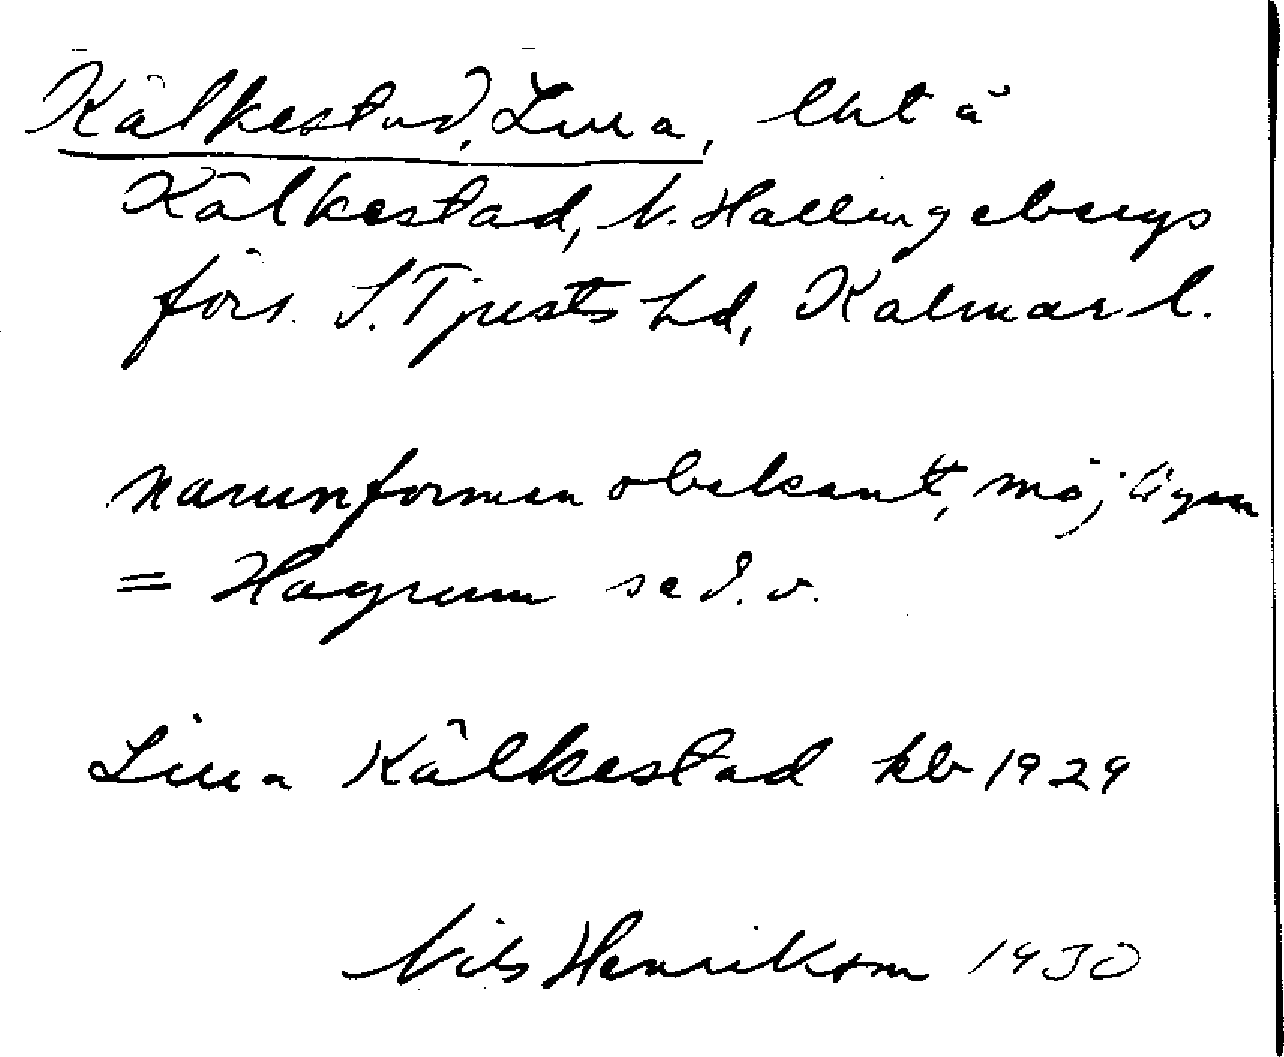 Kälkestad, Lilla, lht å
Kälkestad, V. Hallingebergs
förs. S. Tjusts hd, Kalmar l.
namnformen obekant, möjligen
= Hagrum se d.o.
Lilla Kälkestad kb 1929
Nils Henrikson 1930